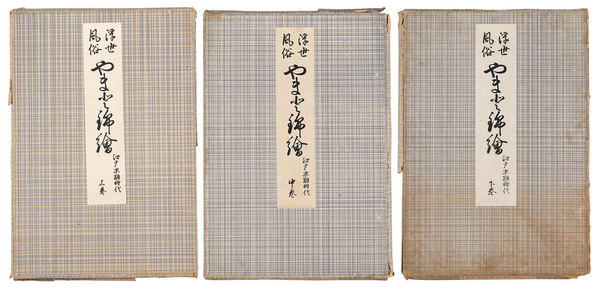 浮世
風俗
やまと錦繪
江戸末期時代
上巻
浮世
風俗
やまと錦繪
江戸末期時代
中巻
浮世
風俗
やまと錦繪
江戸末期時代
下巻